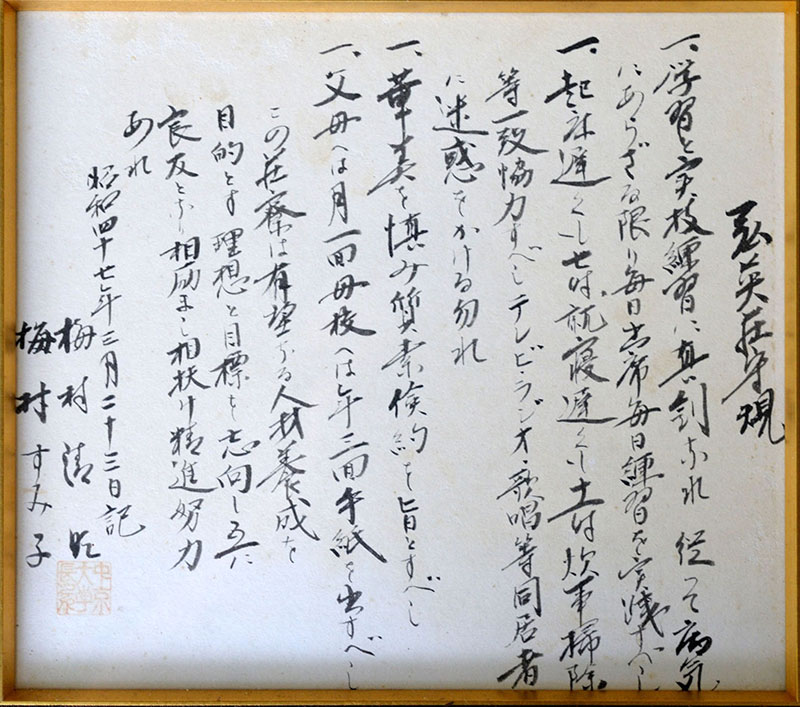 英荘守規
一、学習と実技練習に真剣なれ 従って病気
にあらざる限り毎日出席毎日練習を実践すべし
一、起床遅くも七时就寝遅くも十一时炊事掃除
等一致協力すべし テレビ・ラジオ・歌唱等同居者
に迷惑をかける勿れ
一、華美を慎み質素倹約を旨とすべし
一、父母へは月一回母校へは年三回手紙を出すべし
この荘寮は有望なる人材養成を
目的とす 理想と目標を志向し互に
良友となり相励まし相扶け精進努力
あれ
昭和四十七年三月二十三日記
梅村清
梅村すみ子
中京大学